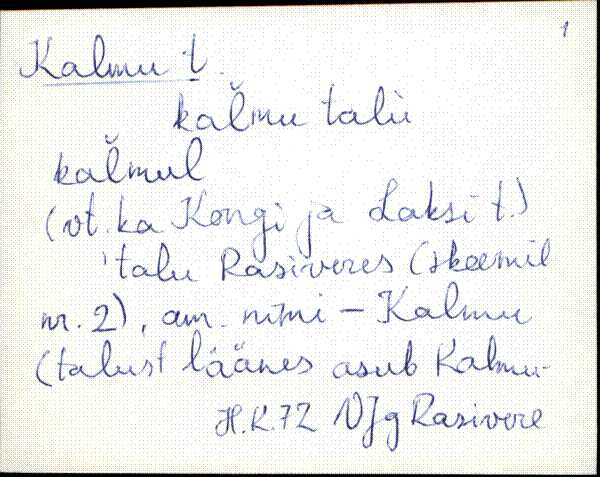 1
Kalmu t.
kal̆mu talù
kal̆mul
(vt. ka Kongi ja Laksi t.)
'talu Rasiveres (skeemil
nr. 2), am. nimi – Kalmu
(talust läänes asub Kalmu-
H.K.72 VJg Rasivere